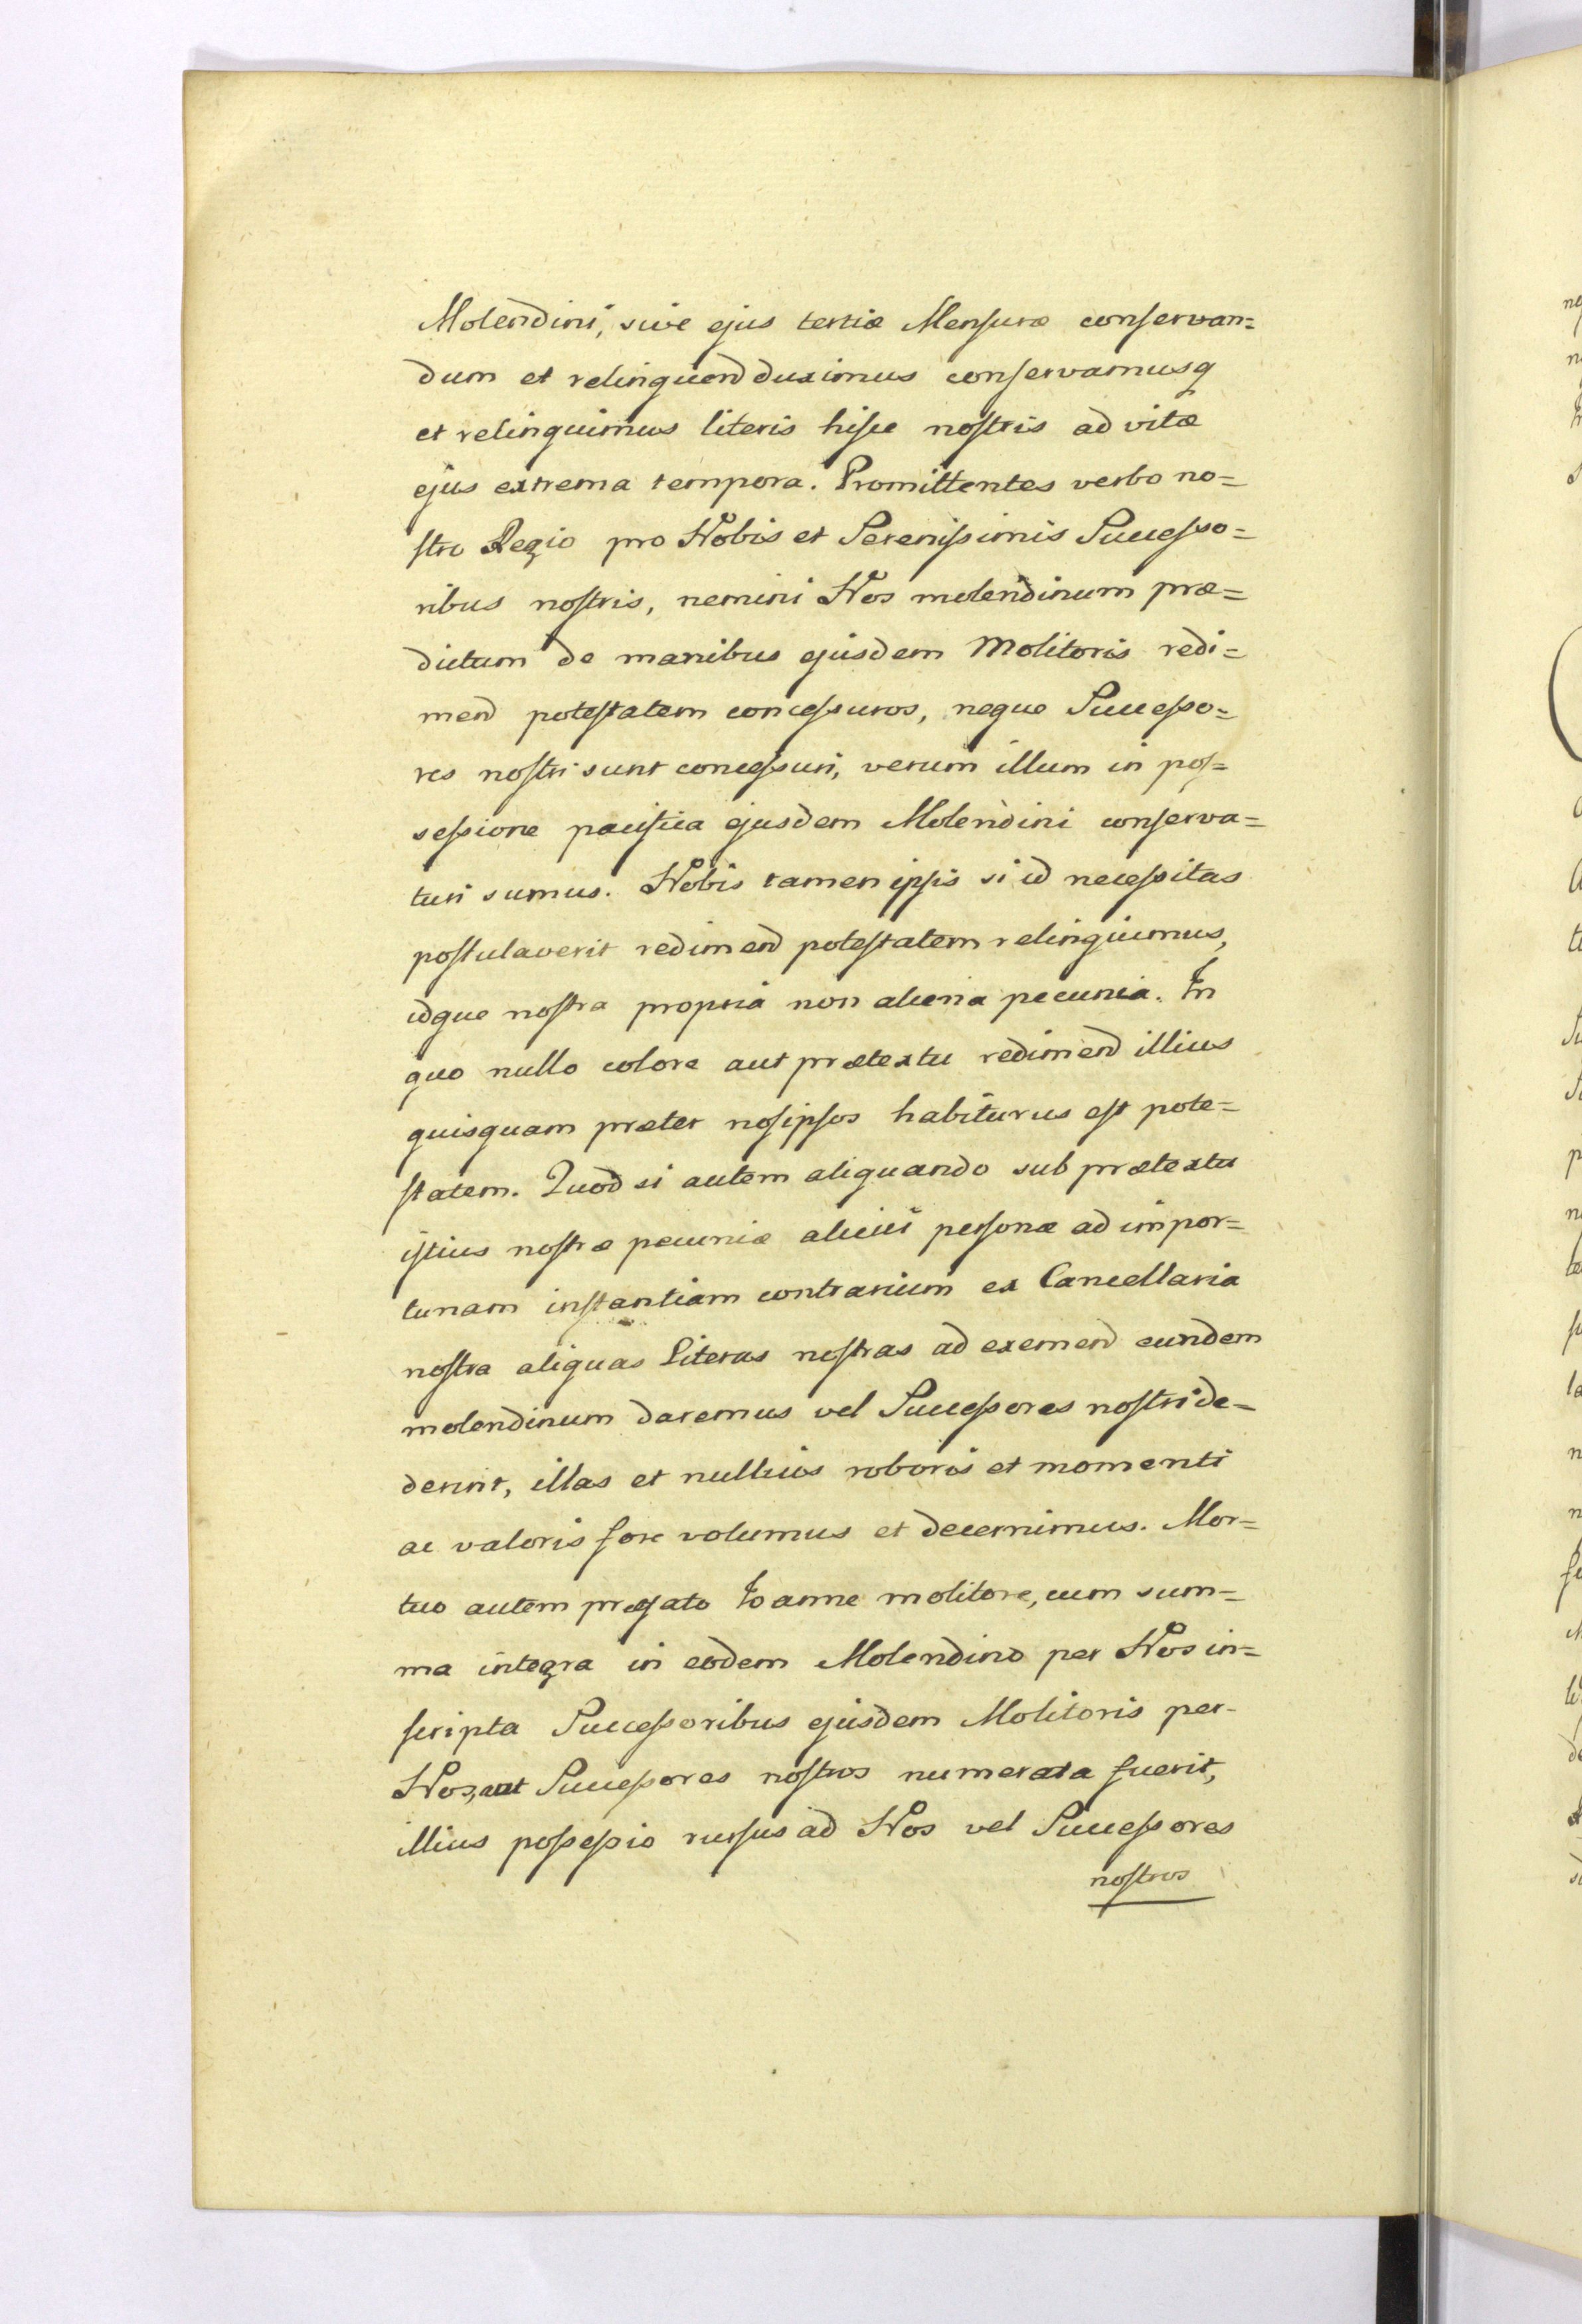 Molendini, sive ejus tertiæ Mensuræ conservan=
dum et relinquend duximus conservamusq
et relinquimus literis hisce nostris ad vitæ
ejus extrema tempora. Promittentes verbo no=
stro Regio pro Nobis et Serenissimis Successo=
ribus nostris, nemini Nos molendinum præ=
dictum de manibus ejusdem Molitoris redi=
mend potestatem concessuros, neque Successo=
res nostri sunt concessuri, verum illum in pos=
sessione pacifica ejusdem Molendini conserva=
turi sumus. Nobis tamen ipsis si id necessitas
postulaverit redimend potestatem relinquimus,
idque nostra propria non aliena pecunia. In
quo nullo colore aut prætextu redimend illius
quisquam præter nosipsos habiturus est pote=
statem. Quod si autem aliquando sub prætextu
istius nostræ pecuniæ alicui personæ ad impor=
tunam instantiam contrarium ex Cancellaria
nostra aliquas Literas nostras ad eximend eundem
molendinum daremus vel Successores nostri de=
derint, illas et nullius roboris et momenti
ac valoris fore volumus et decernimus. Mor=
tuo autem præfato Ioanne molitore, cum sum=
ma integra in eodem Molendino per Nos in=
scripta Successoribus ejusdem Molitoris per
Nos, aut Successores nostros numerata fuerit,
illius possessio rursus ad Nos vel Successores
nostros